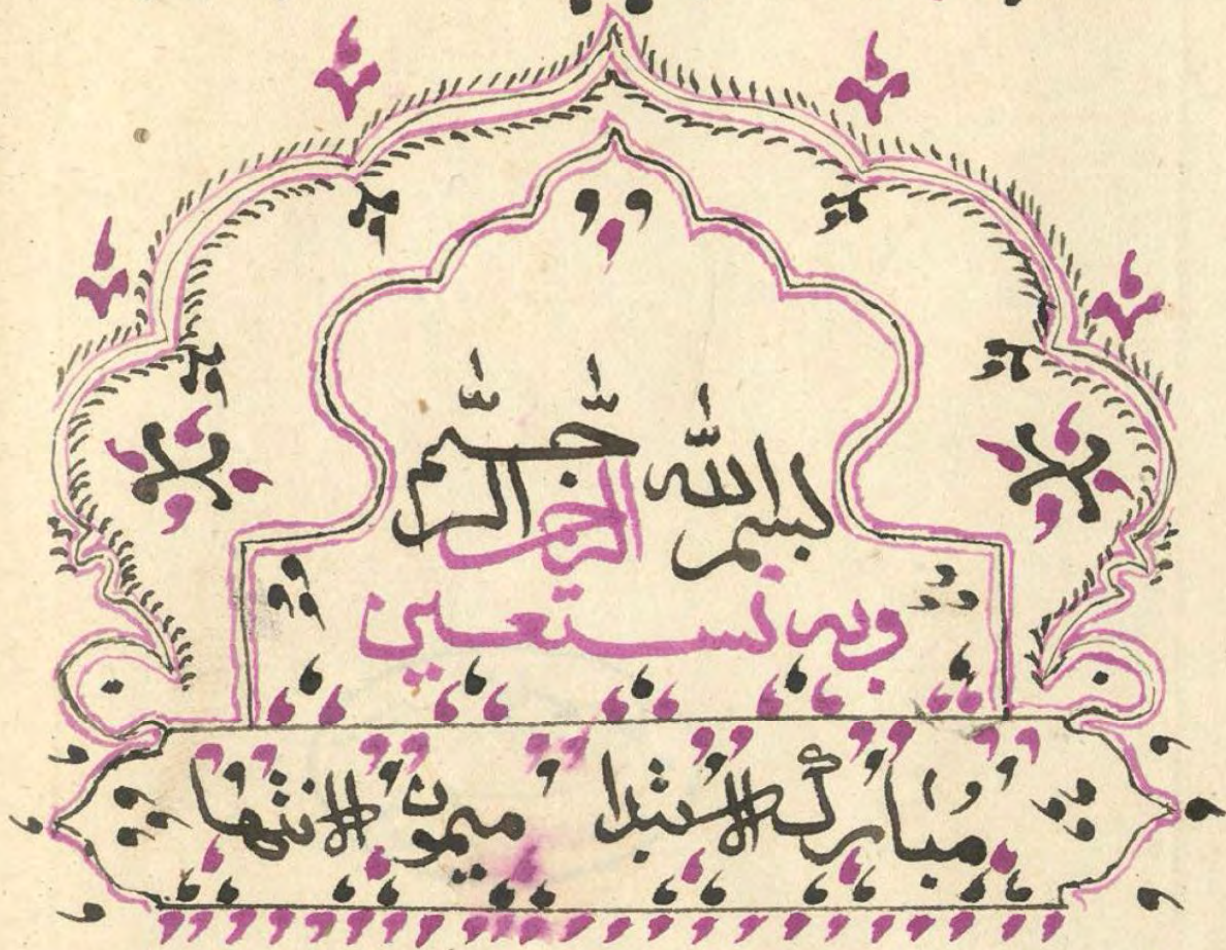 بسم الله الرحمن الرحيم
وبه نستعين
مبارك الابتدا ميمون الانتها